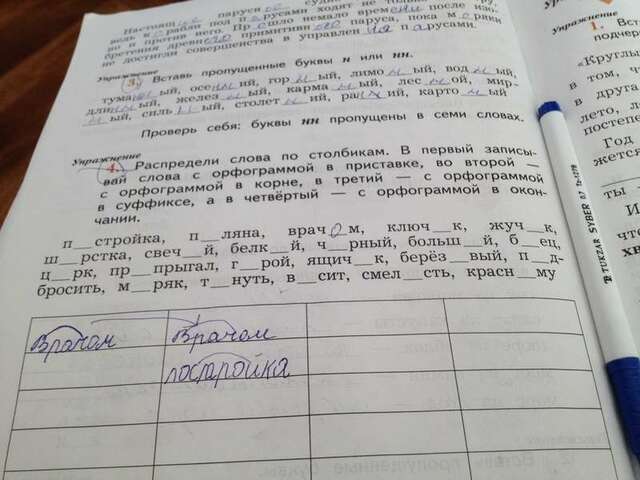 паруси
вель к о рабли под п а русами ходят не только
но и против него. Пр о шло немало врем ени после изо-
бретения древн его примитивн ого паруса, пока м о ряки
не достигли совершенства в управлен ии п а русами.
Упражнение
3. Вставь пропущенные буквы н или нн.
тума нн ый, осе нн ий, гор н ый, лимо нн ый, вод н ый,
дли нн ый, желез н ый, карма нн ый, лес н ой, мир-
н ый, силь н ый, столет н ий, ра нн ий, карто нн ый
Проверь себя: буквы нн пропущены в семи словах.
Упражнение
4. Распредели слова по столбикам. В первый записы-
вай слова с орфограммой в приставке, во второй —
с орфограммой в корне, в третий — с орфограммой
в суффиксе, а в четвёртый — с орфограммой в окон-
чании.
п__стройка, п__ляна, врач о м, ключ__к, жуч__к,
ш__рстка, свеч__й, белк__й, ч__рный, больш__й, б__ец,
ц__рк, пр__прыгал, г__рой, ящич__к, берёз__вый, п__д-
бросить, м__ряк, т__нуть, в__сит, смел__сть, красн__му
Врачом Врачом
постаройка
Упражнение
1. Вс
подчер
«Круглы
в том, ч
в друга
лето, л
постепе
Год
жется
ты
И
что
хв
TUKZAR SYBER 0.7 Tz-1279